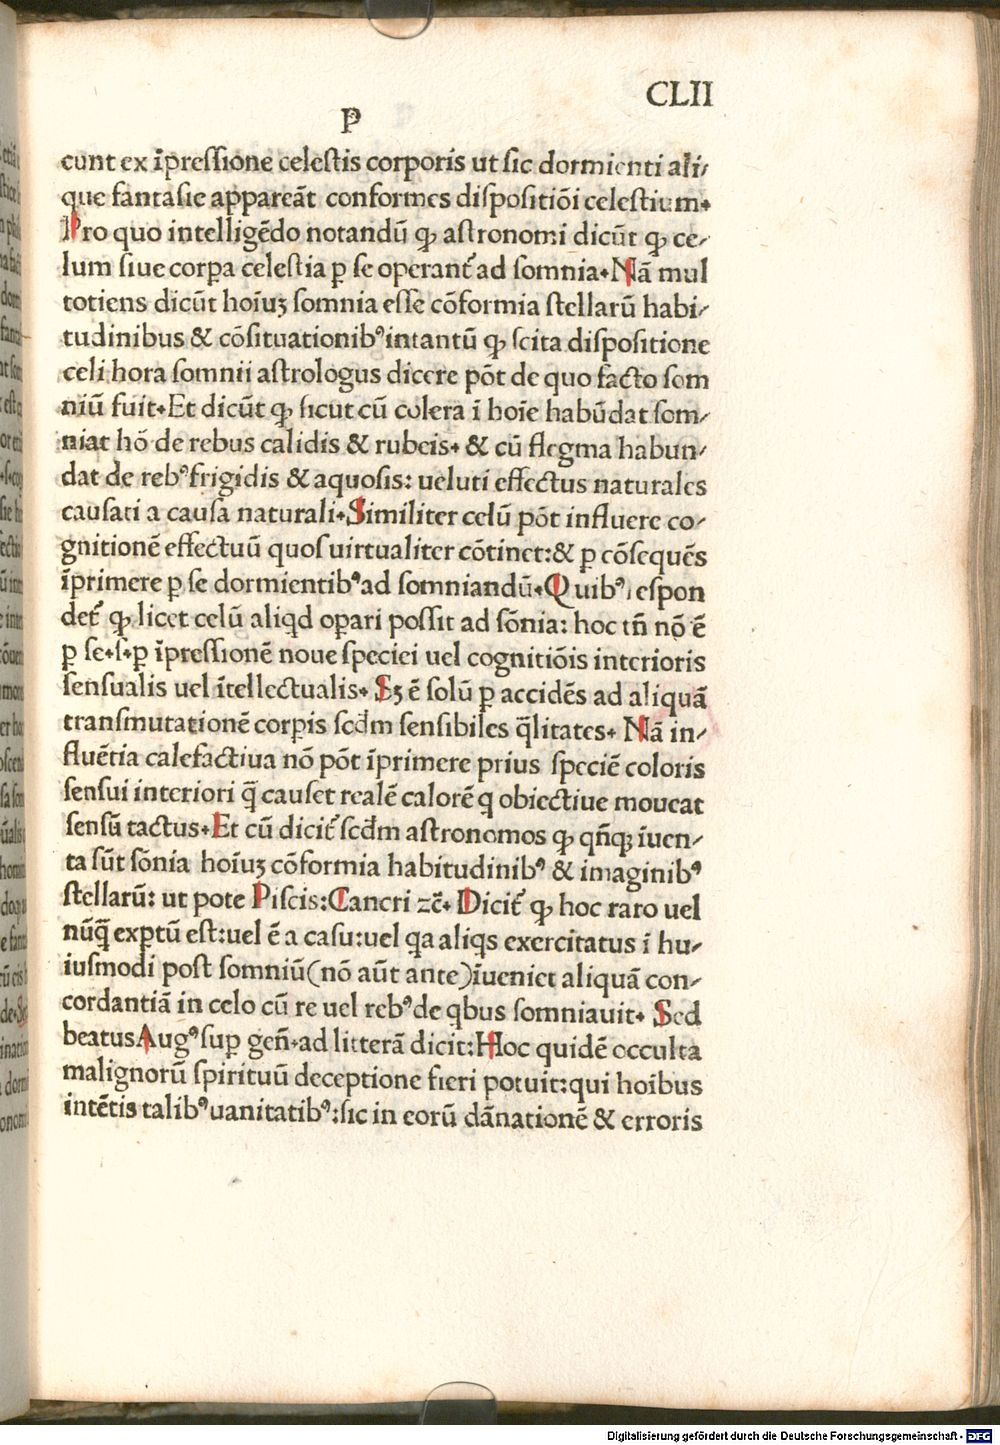 CLII
P
cunt ex īpressione celestis corporis ut sic dormienti ali⸗
que fantasie appareāt conformes dispositiōi celestium.
Pro quo intelligēdo notandū ꝙ astronomi dicūt ꝙ ce⸗
lum siue corꝑa celestia ꝑ se operant᷑ ad somnia. Nā mul
totiens dicūt hoīuꝫ somnia esse cōformia stellarū habi⸗
tudinibus & cōsituationibꝰ intantū ꝙ scita dispositione
celi hora somnii astrologus dicere pōt de quo facto som
niū fuit. Et dicūt ꝙ sicut cū colera ī hoīe habūdat som⸗
niat hō de rebus calidis & rubeis. & cū flegma habun⸗
dat de rebꝰ frigidis & aquosis: ueluti effectus naturales
causati a causa naturali. Similiter celū pōt influere co⸗
gnitionē effectuū quos uirtualiter cōtinet: & ꝑ cōsequēs
īprimere ꝑ se dormientibꝰ ad somniandū. Quibꝰ respon
det᷑ ꝙ licet celū aliqd oꝑari possit ad sōnia: hoc tn̄ nō ē
ꝑ se.s.ꝑ īpressionē noue speciei uel cognitiōis interioris
sensualis uel ītellectualis. Sꝫ ē solū ꝑ accidēs ad aliquā
transmutationē corꝑis scd̄m sensibiles q̄litates. Nā in⸗
fluētia calefactiua nō pōt īprimere prius speciē coloris
sensui interiori q̄ causet realē calorē q obiectiue moueat
sensū tactus. Et cū dicit᷑ scd̄m astronomos ꝙ qn̄qꝫ īuen⸗
ta sūt sōnia hoīuꝫ cōformia habitudinibꝰ & imaginibꝰ
stellarū: ut pote Piscis: Cancri zc̄. Dicit᷑ ꝙ hoc raro uel
nūq̄ exꝑtū est: uel ē a casu: uel qa aliqs exercitatus ī hu⸗
iusmodi post somniū (nō aūt ante) īueniet aliquā con⸗
cordantiā in celo cū re uel rebꝰ de qbus somniauit. Sed
beatus Augꝰ suꝑ gen̄. ad litterā dicit: Hoc quidē occulta
malignorū spirituū deceptione fieri potuit: qui hoībus
intētis talibꝰ uanitatibꝰ: sic in eorū dānationē & erroris
Digitalisierung gefördert durch die Deutsche Forschungsgemeinschaft - DFG